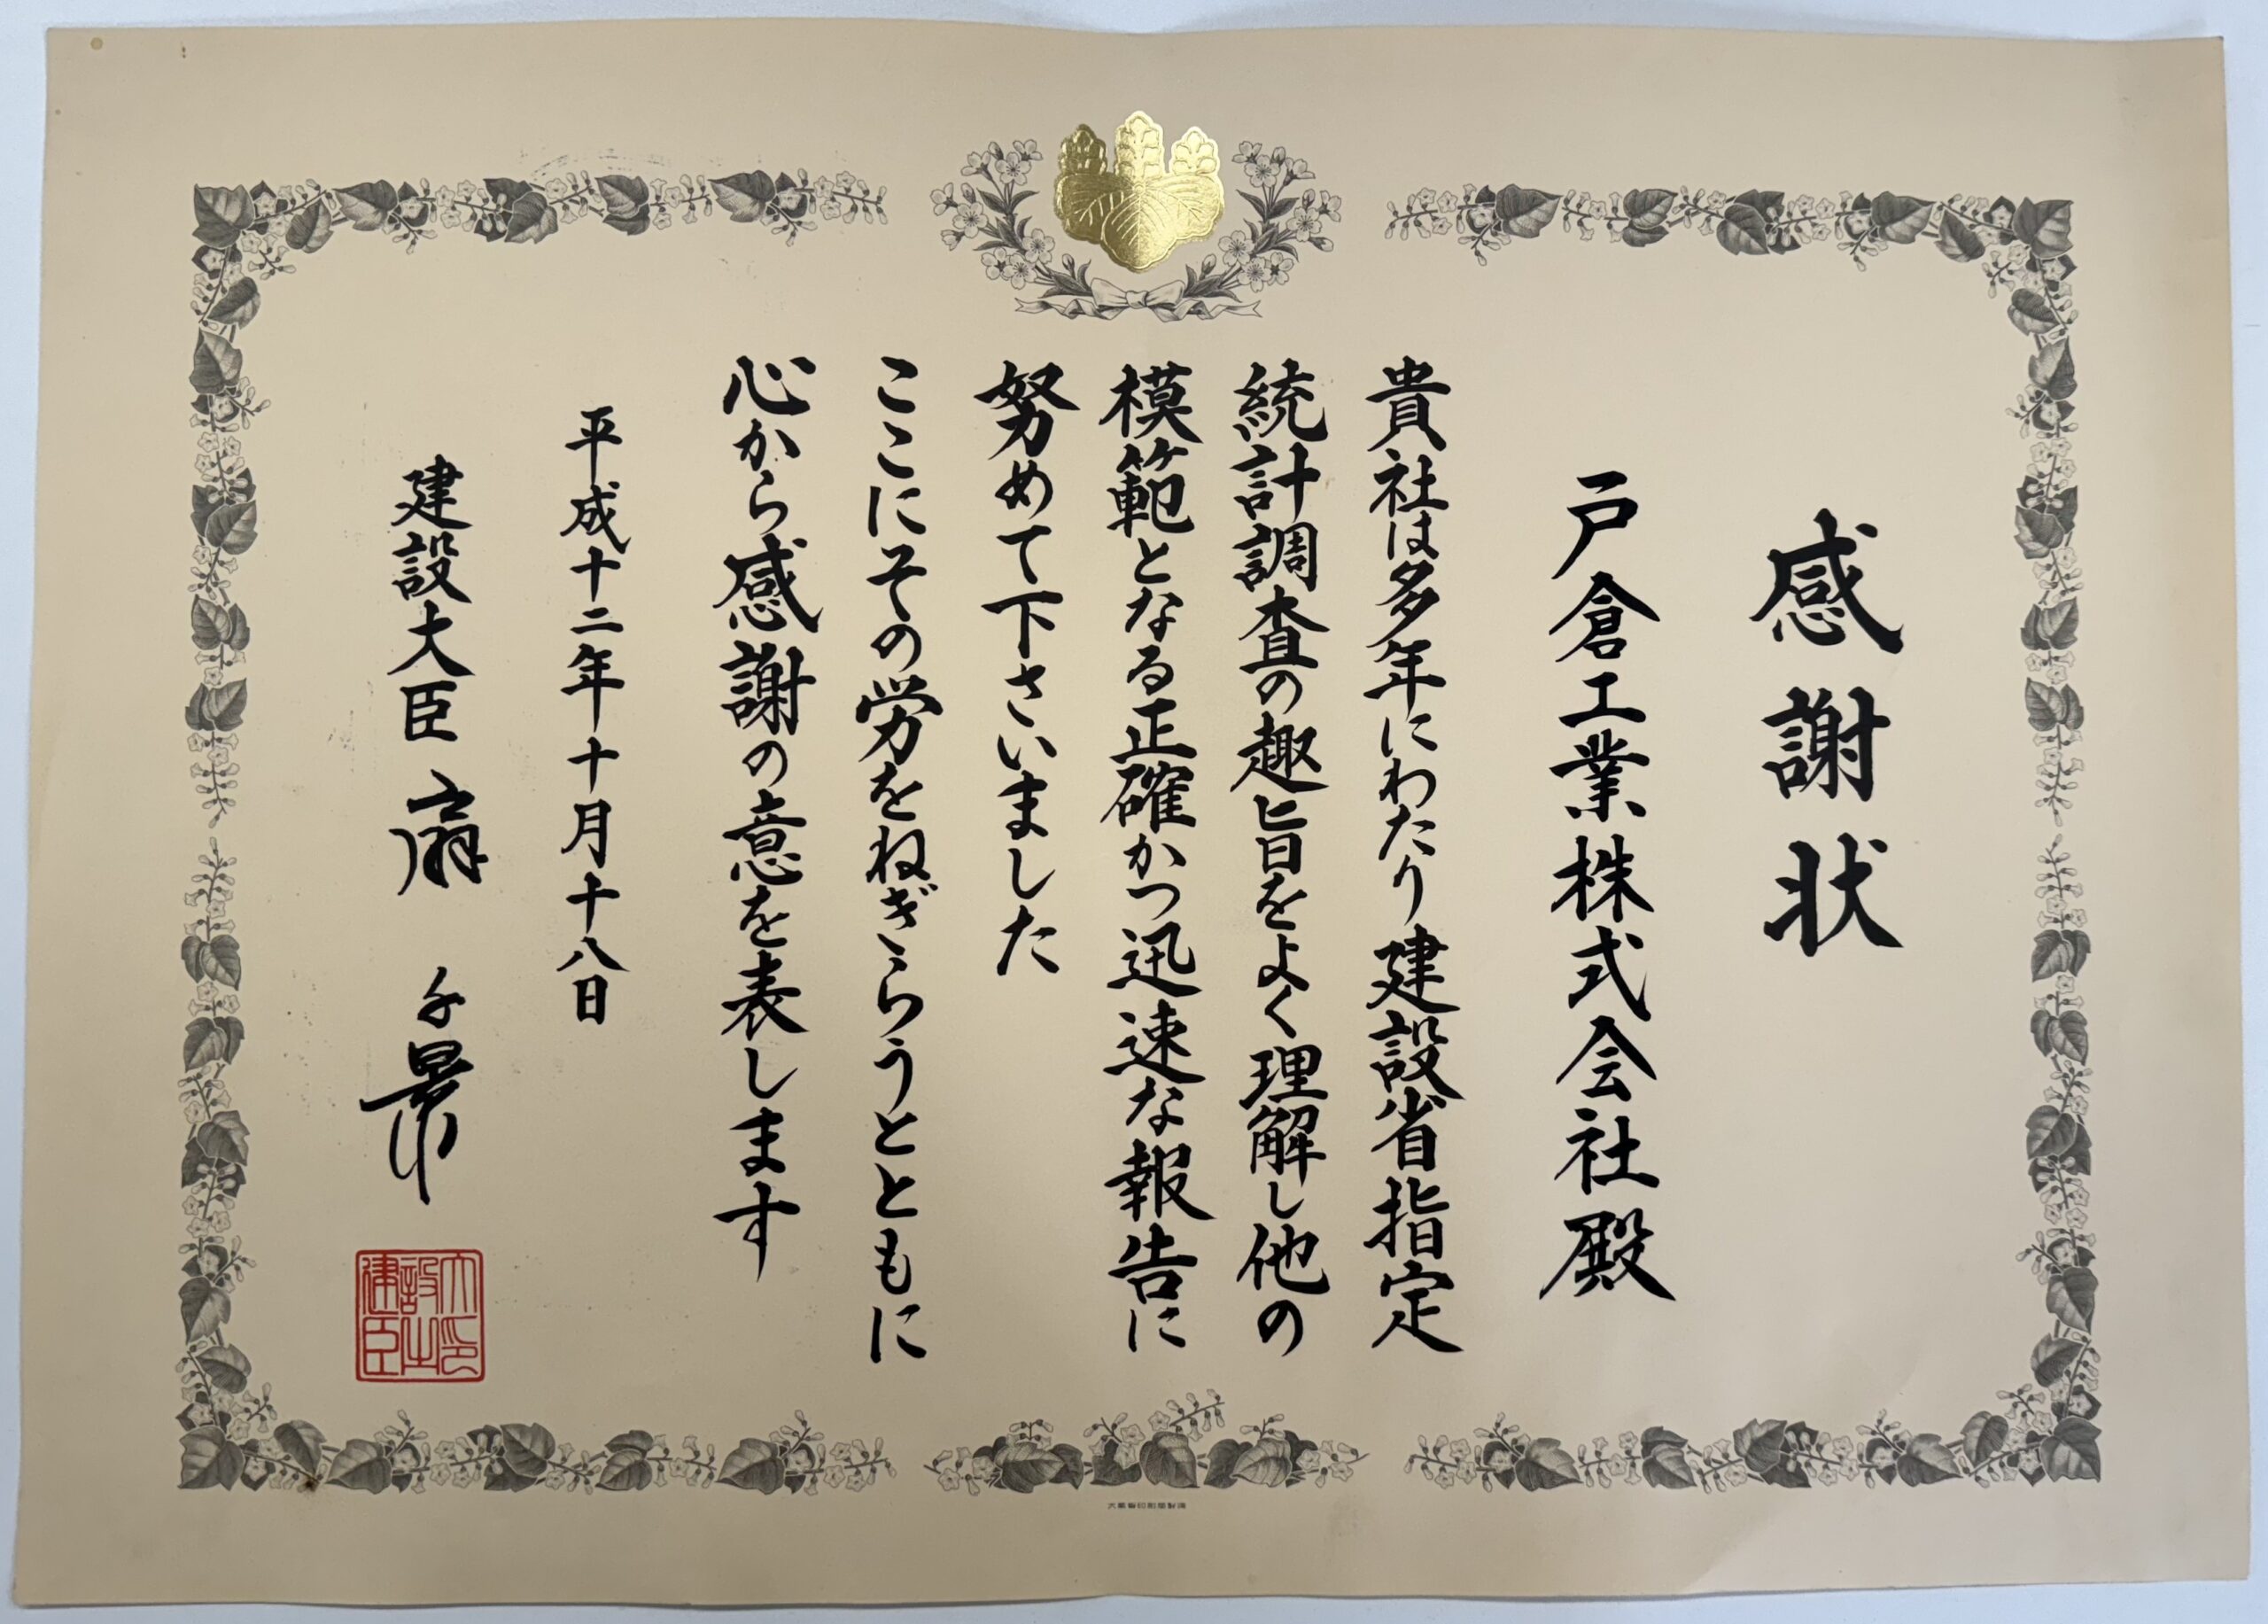 感謝状
戸倉工業株式会社殿
貴社は多年にわたり建設省指定
統計調査の趣旨をよく理解し他の
模範となる正確かつ迅速な報告に
努めて下さいました
ここにその労をねぎらうとともに
心から感謝の意を表します
平成十二年十月十八日
建設大臣 扇 千景
建設大臣之印
大蔵省印刷局製造